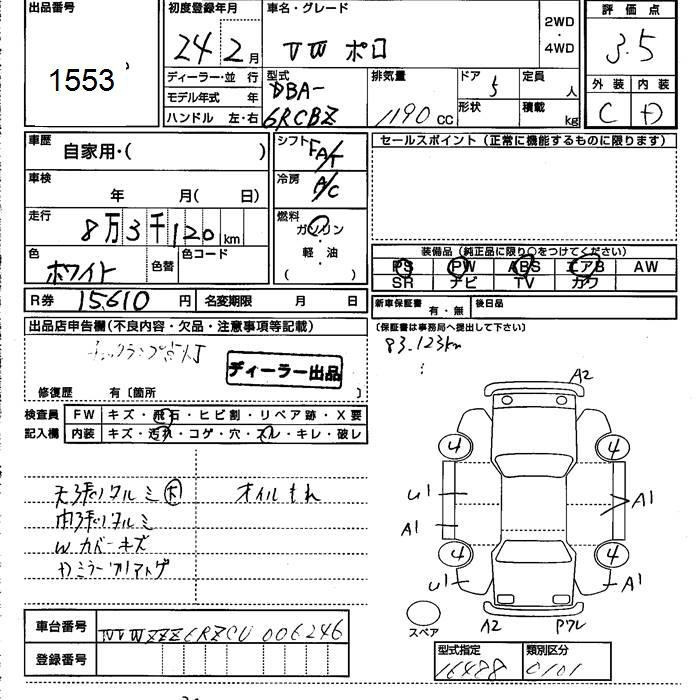 出品番号
1553
初度登録年月
24年2月
車名・グレード
VW ポロ
2WD
・
4WD
評価点
3.5
外装 内装
C D
ディーラー・並行
モデル年式 年
ハンドル 左・右
型式
DBA-
6RCBZ
排気量
1190 cc
ドア
5
定員 人
形状
積載 kg
車歴
自家用・( )
車検
年 月( 日)
走行
8万3千120km
色
ホワイト
色替
色コード
シフト
FA/T
冷房
A/C
燃料
ガソリン
・
軽・油
( )
セールスポイント (正常に機能するものに限ります)
装備品 (純正品に限り○をつけてください)
PS PW ABS エアB AW
SR ナビ TV カワ
R券 15,610 円 名変期限 月 日
新車保証書 有・無 後日品
(保証書は事務局へ提出して下さい)
83,123km
出品店申告欄(不良内容・欠品・注意事項等記載)
チェックランプ点灯
ディーラー出品
修復歴 有〔箇所 〕
検査員 FW キズ・飛石・ヒビ割・リペア跡・X要
記入欄 内装 キズ・汚れ・コゲ・穴・スレ・キレ・破レ
天張りタルミ オイルもれ
内張りタルミ
W カバーキズ
A2
4 4
U1 A1
A1
4 4
U1 A1
スペア
A2
車台番号 WVWZZZ6RZCU006246
登録番号
型式指定
16488
類別区分
0101